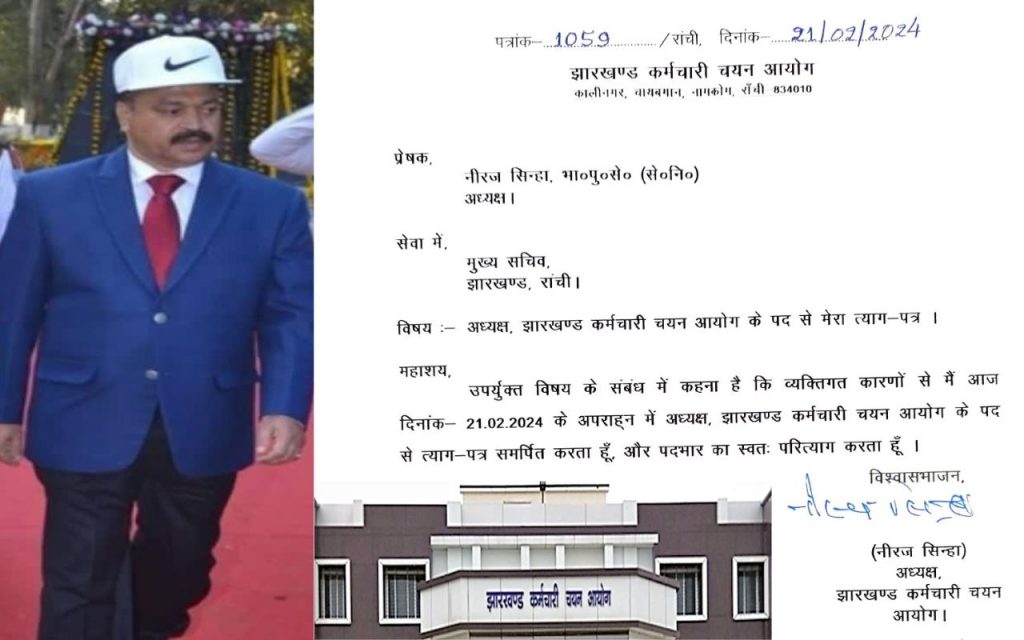 पत्रांक– 1059 /रांची, दिनांक– 21/02/2024
झारखण्ड कर्मचारी चयन आयोग
कालीनगर, चायबगान, नामकोम, राँची 834010
प्रेषक,
नीरज सिन्हा, भा०पु०से० (से०नि०)
अध्यक्ष।
सेवा में,
मुख्य सचिव,
झारखण्ड, रांची।
विषय :– अध्यक्ष, झारखण्ड कर्मचारी चयन आयोग के पद से मेरा त्याग–पत्र ।
महाशय,
उपर्युक्त विषय के संबंध में कहना है कि व्यक्तिगत कारणों से मैं आज
दिनांक– 21.02.2024 के अपराह्न में अध्यक्ष, झारखण्ड कर्मचारी चयन आयोग के पद
से त्याग–पत्र समर्पित करता हूँ, और पदभार का स्वतः परित्याग करता हूँ ।
विश्वासभाजन,
(नीरज सिन्हा)
अध्यक्ष,
झारखण्ड कर्मचारी चयन
आयोग।
झारखण्ड कर्मचारी चयन आयोग